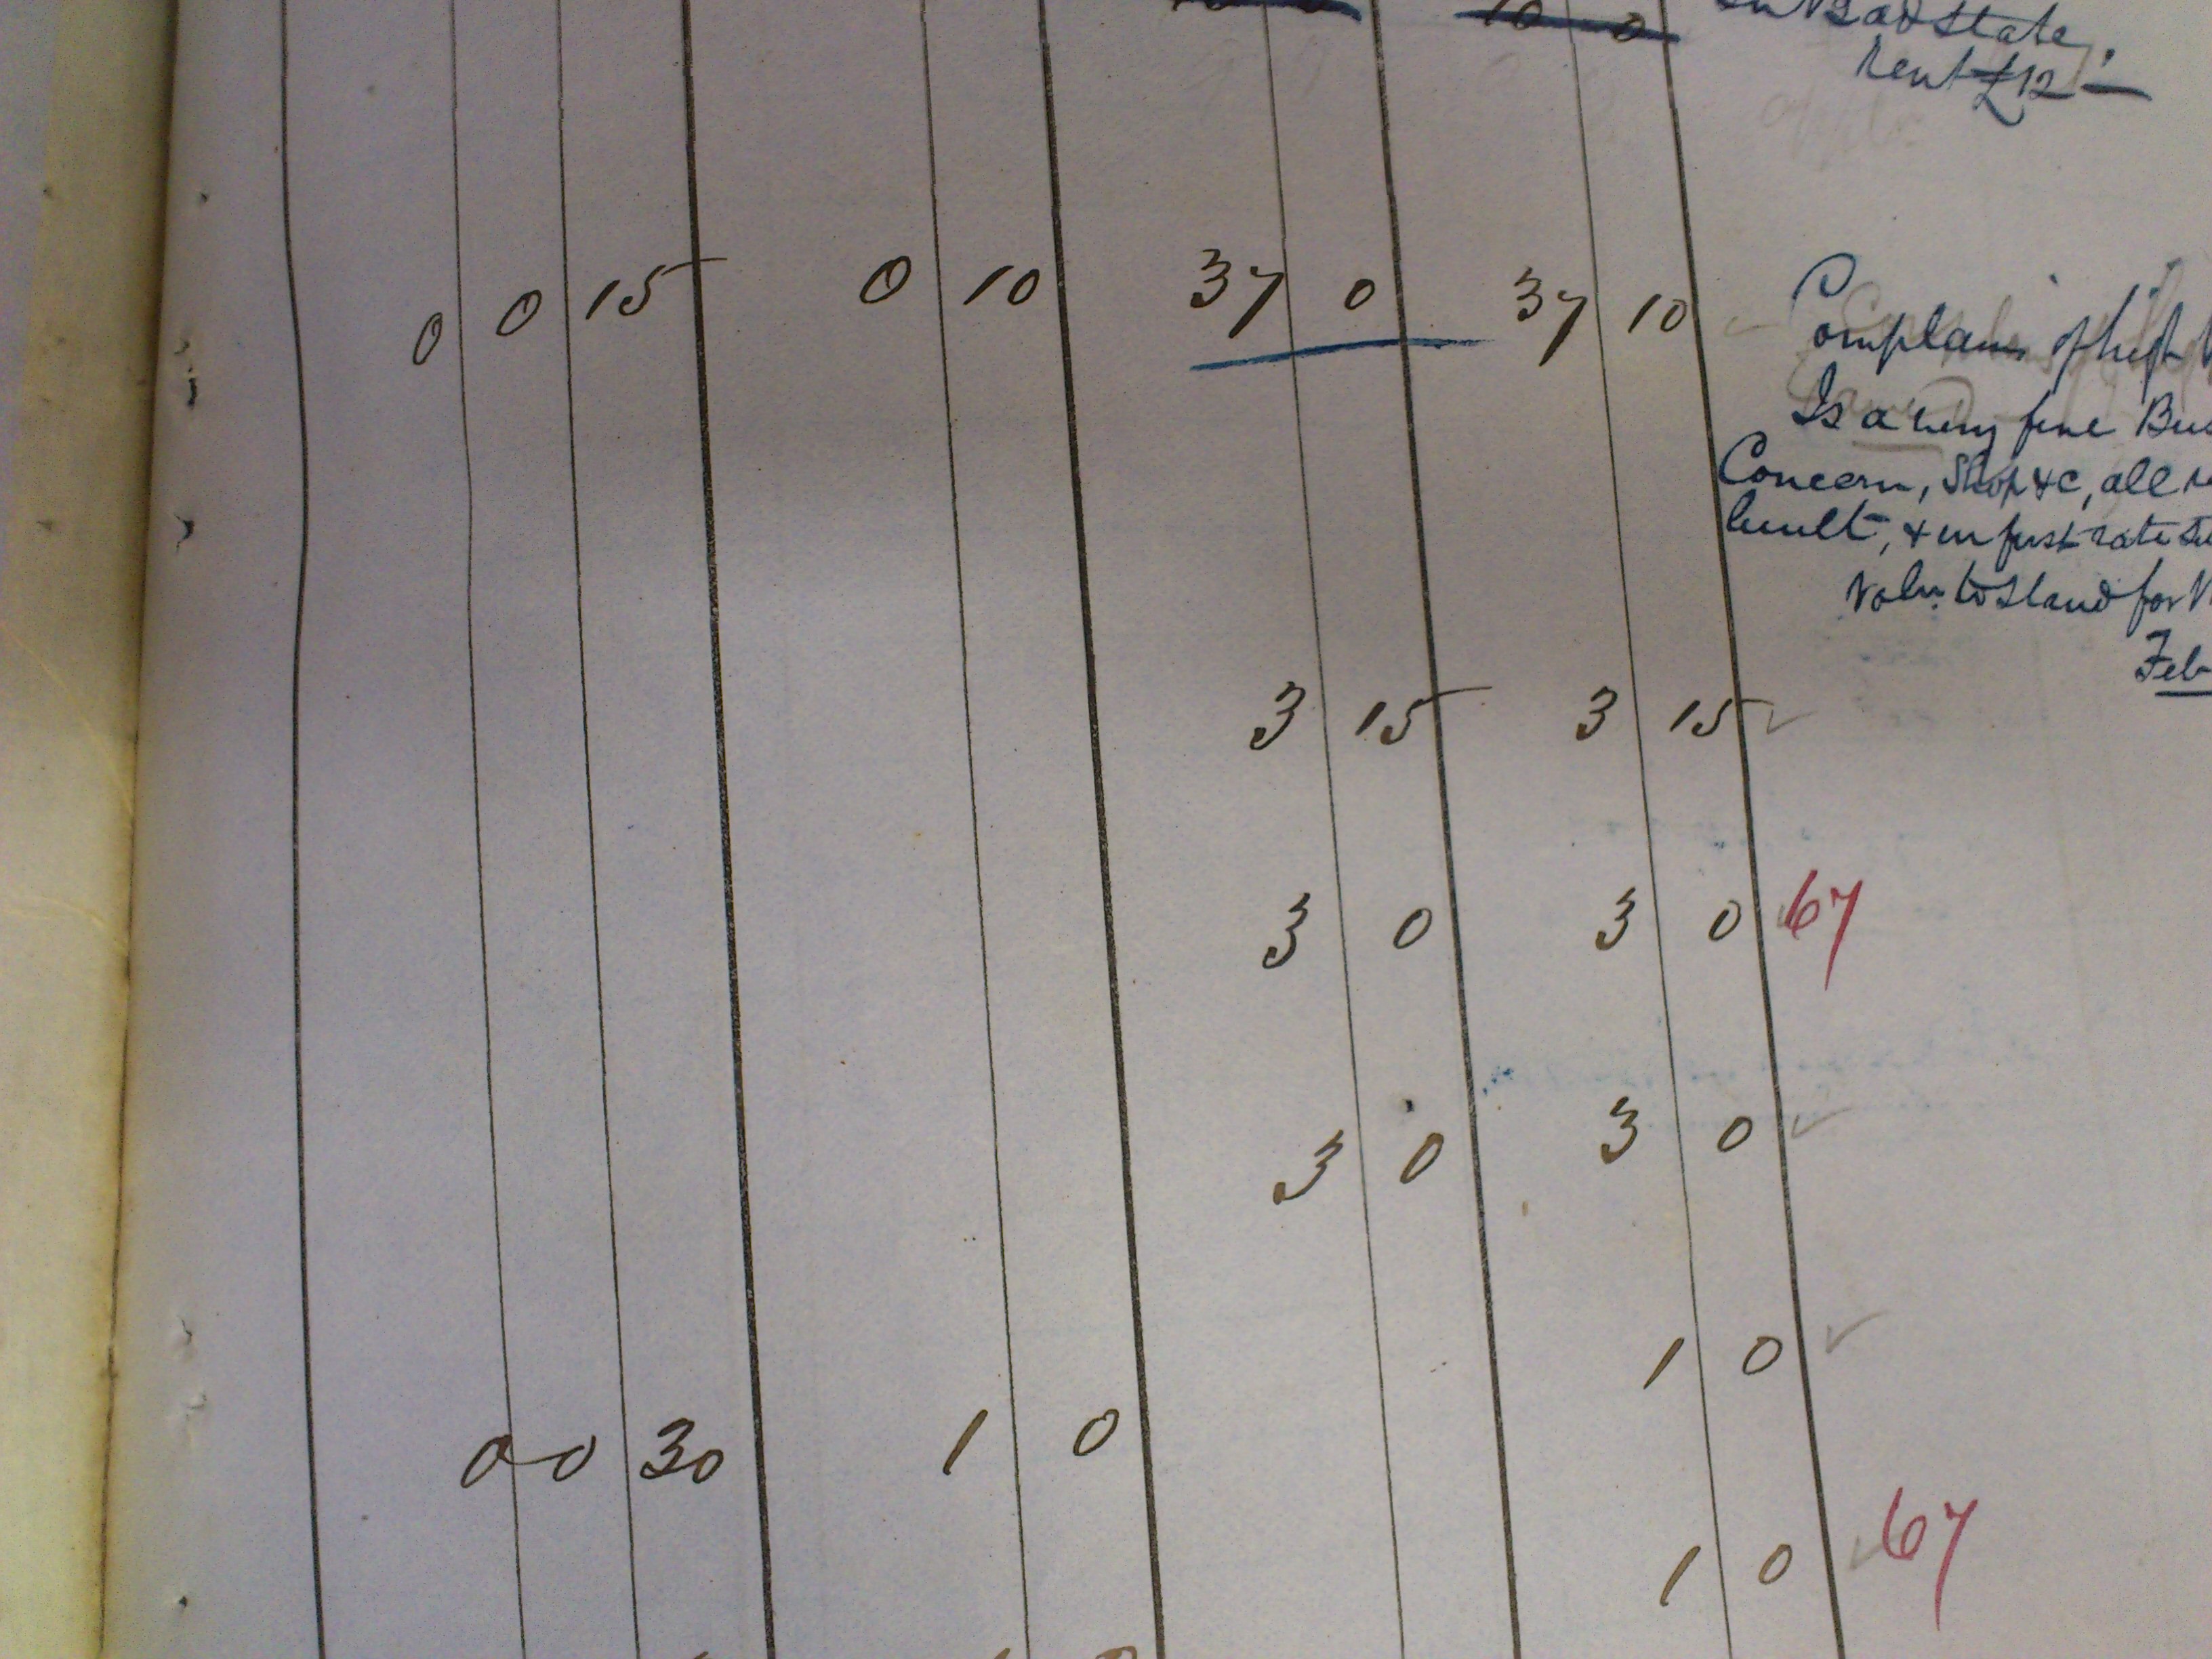 10 0 10 0 in Bad State.
Rent £12 -
0 0 15 0 10 37 0 37 10
Complains of high
Is a very fine
Concern, Shop &c, all
built, & in first rate
Valn. to stand for
Feb
3 15 3 15
3 0 3 0 67
3 0 3 0
1 0
0 0 30 1 0
1 0 67